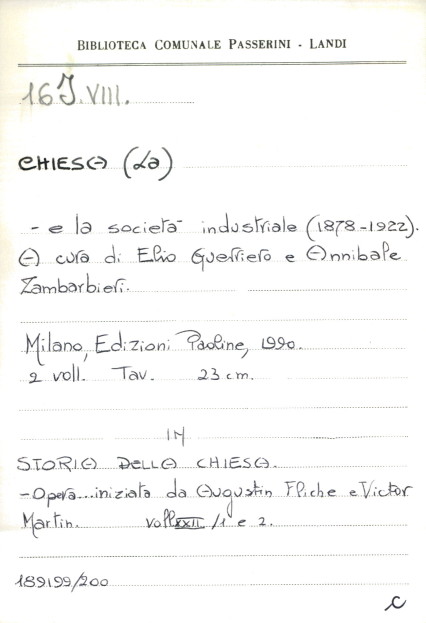 BIBLIOTECA COMUNALE PASSERINI - LANDI
16 J. VIII.
CHIESA (La)
- e la società industriale (1878-1922).
A cura di Elio Guerriero e Annibale
Zambarbieri.
Milano, Edizioni Paoline, 1990.
2 voll. Tav. 23 cm.
IN
STORIA DELLA CHIESA.
- Opera...iniziata da Augustin Fliche e Victor
Martin. Voll. XXII /1 e 2.
189199/200
C